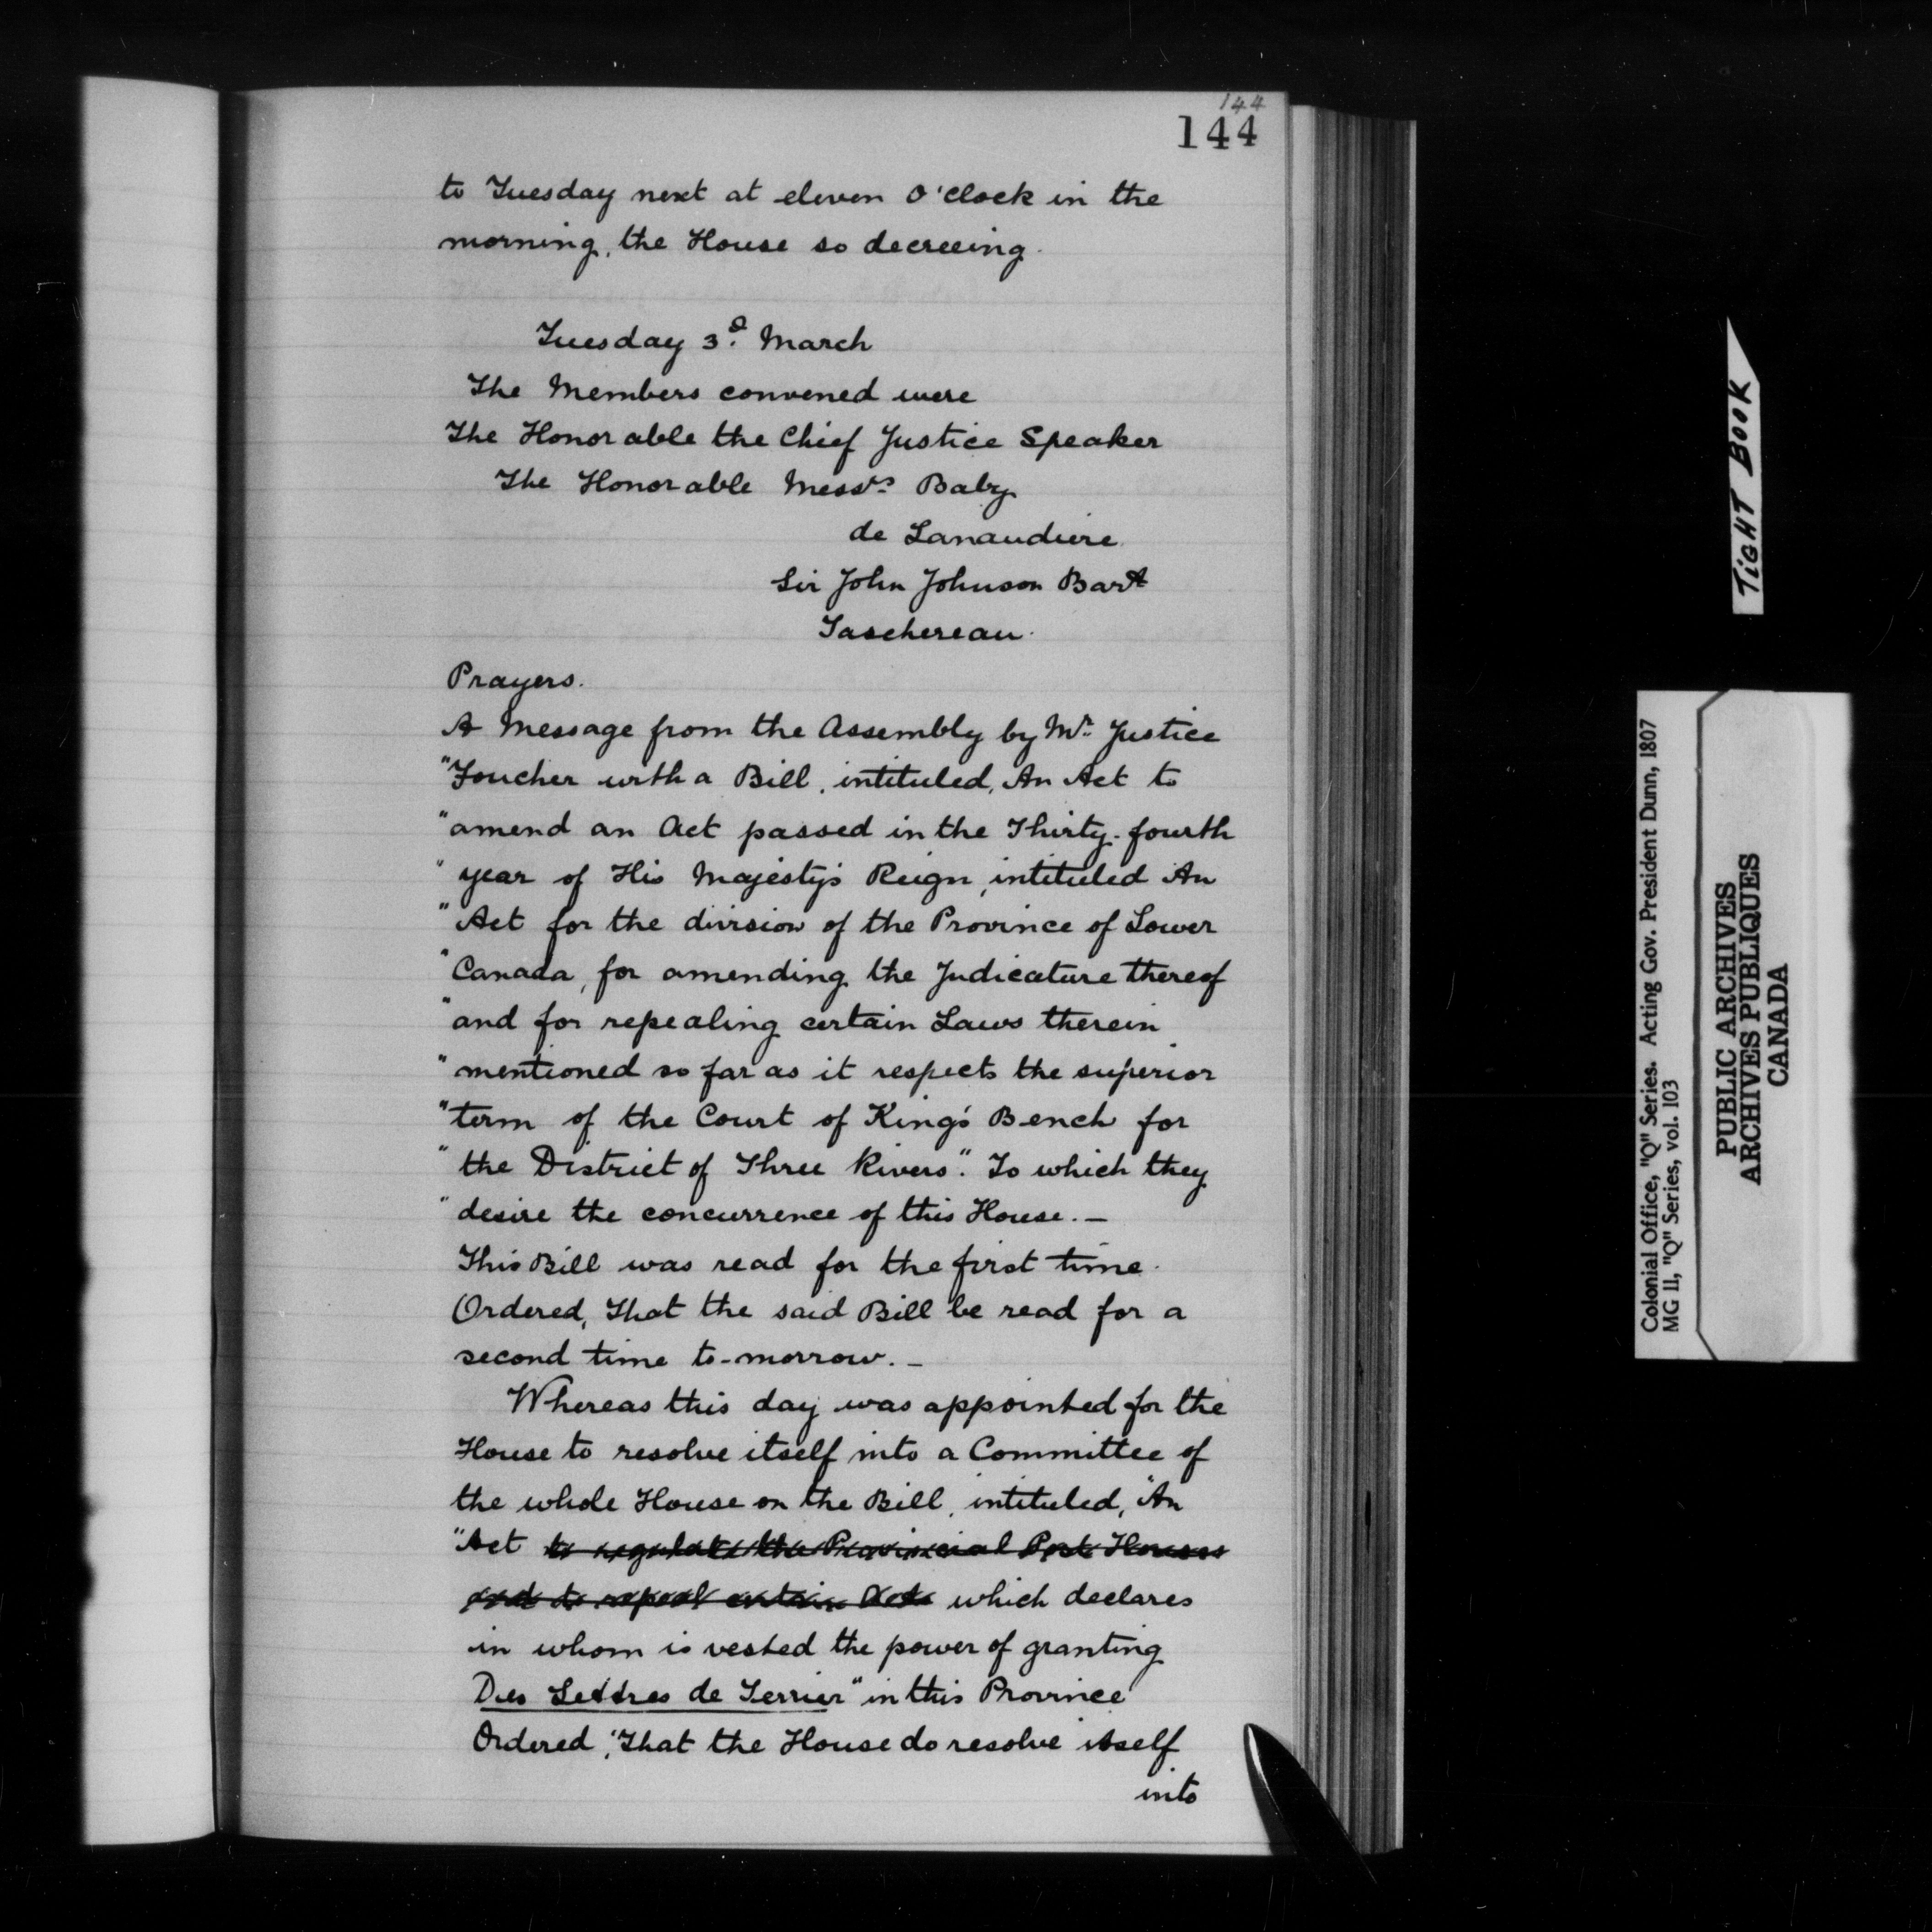 144
144
to Tuesday next at eleven O'Clock in the
morning, the House so decreeing.
Tuesday 3d. March
The Members convened were
The Honorable the Chief Justice Speaker
The Honorable Messrs Baby
de Lanaudiere
Sir John Johnson Bart
Taschereau.
Prayers.
A Message from the Assembly by Mr. Justice
"Foucher with a Bill, intituled, An Act to
"amend an Act passed in the Thirty-fourth
"year of His Majesty's Reign, intituled An
"Act for the division of the Province of Lower
"Canada, for amending the Judicature thereof
"and for repealing certain Laws therein
"mentioned so far as it respects the superior
"term of the Court of King's Bench for
"the District of Three Rivers". To which they
"desire the concurrence of this House.—
This Bill was read for the first time.
Ordered, That the said Bill be read for a
second time to-morrow.—
Whereas this day was appointed for the
House to resolve itself into a Committee of
the whole House on the Bill, intituled, "An
"Act to regulate the Provincial Post Houses
and to repeal certain Acts which declares
in whom is vested the power of granting
Des Lettres de Terrier" in this Province
Ordered, That the House do resolve itself
into
TIGHT BOOK
Colonial Office, "Q" Series. Acting Gov. President Dunn, 1807
MG 11, "Q" Series, vol. 103
PUBLIC ARCHIVES
ARCHIVES PUBLIQUES
CANADA